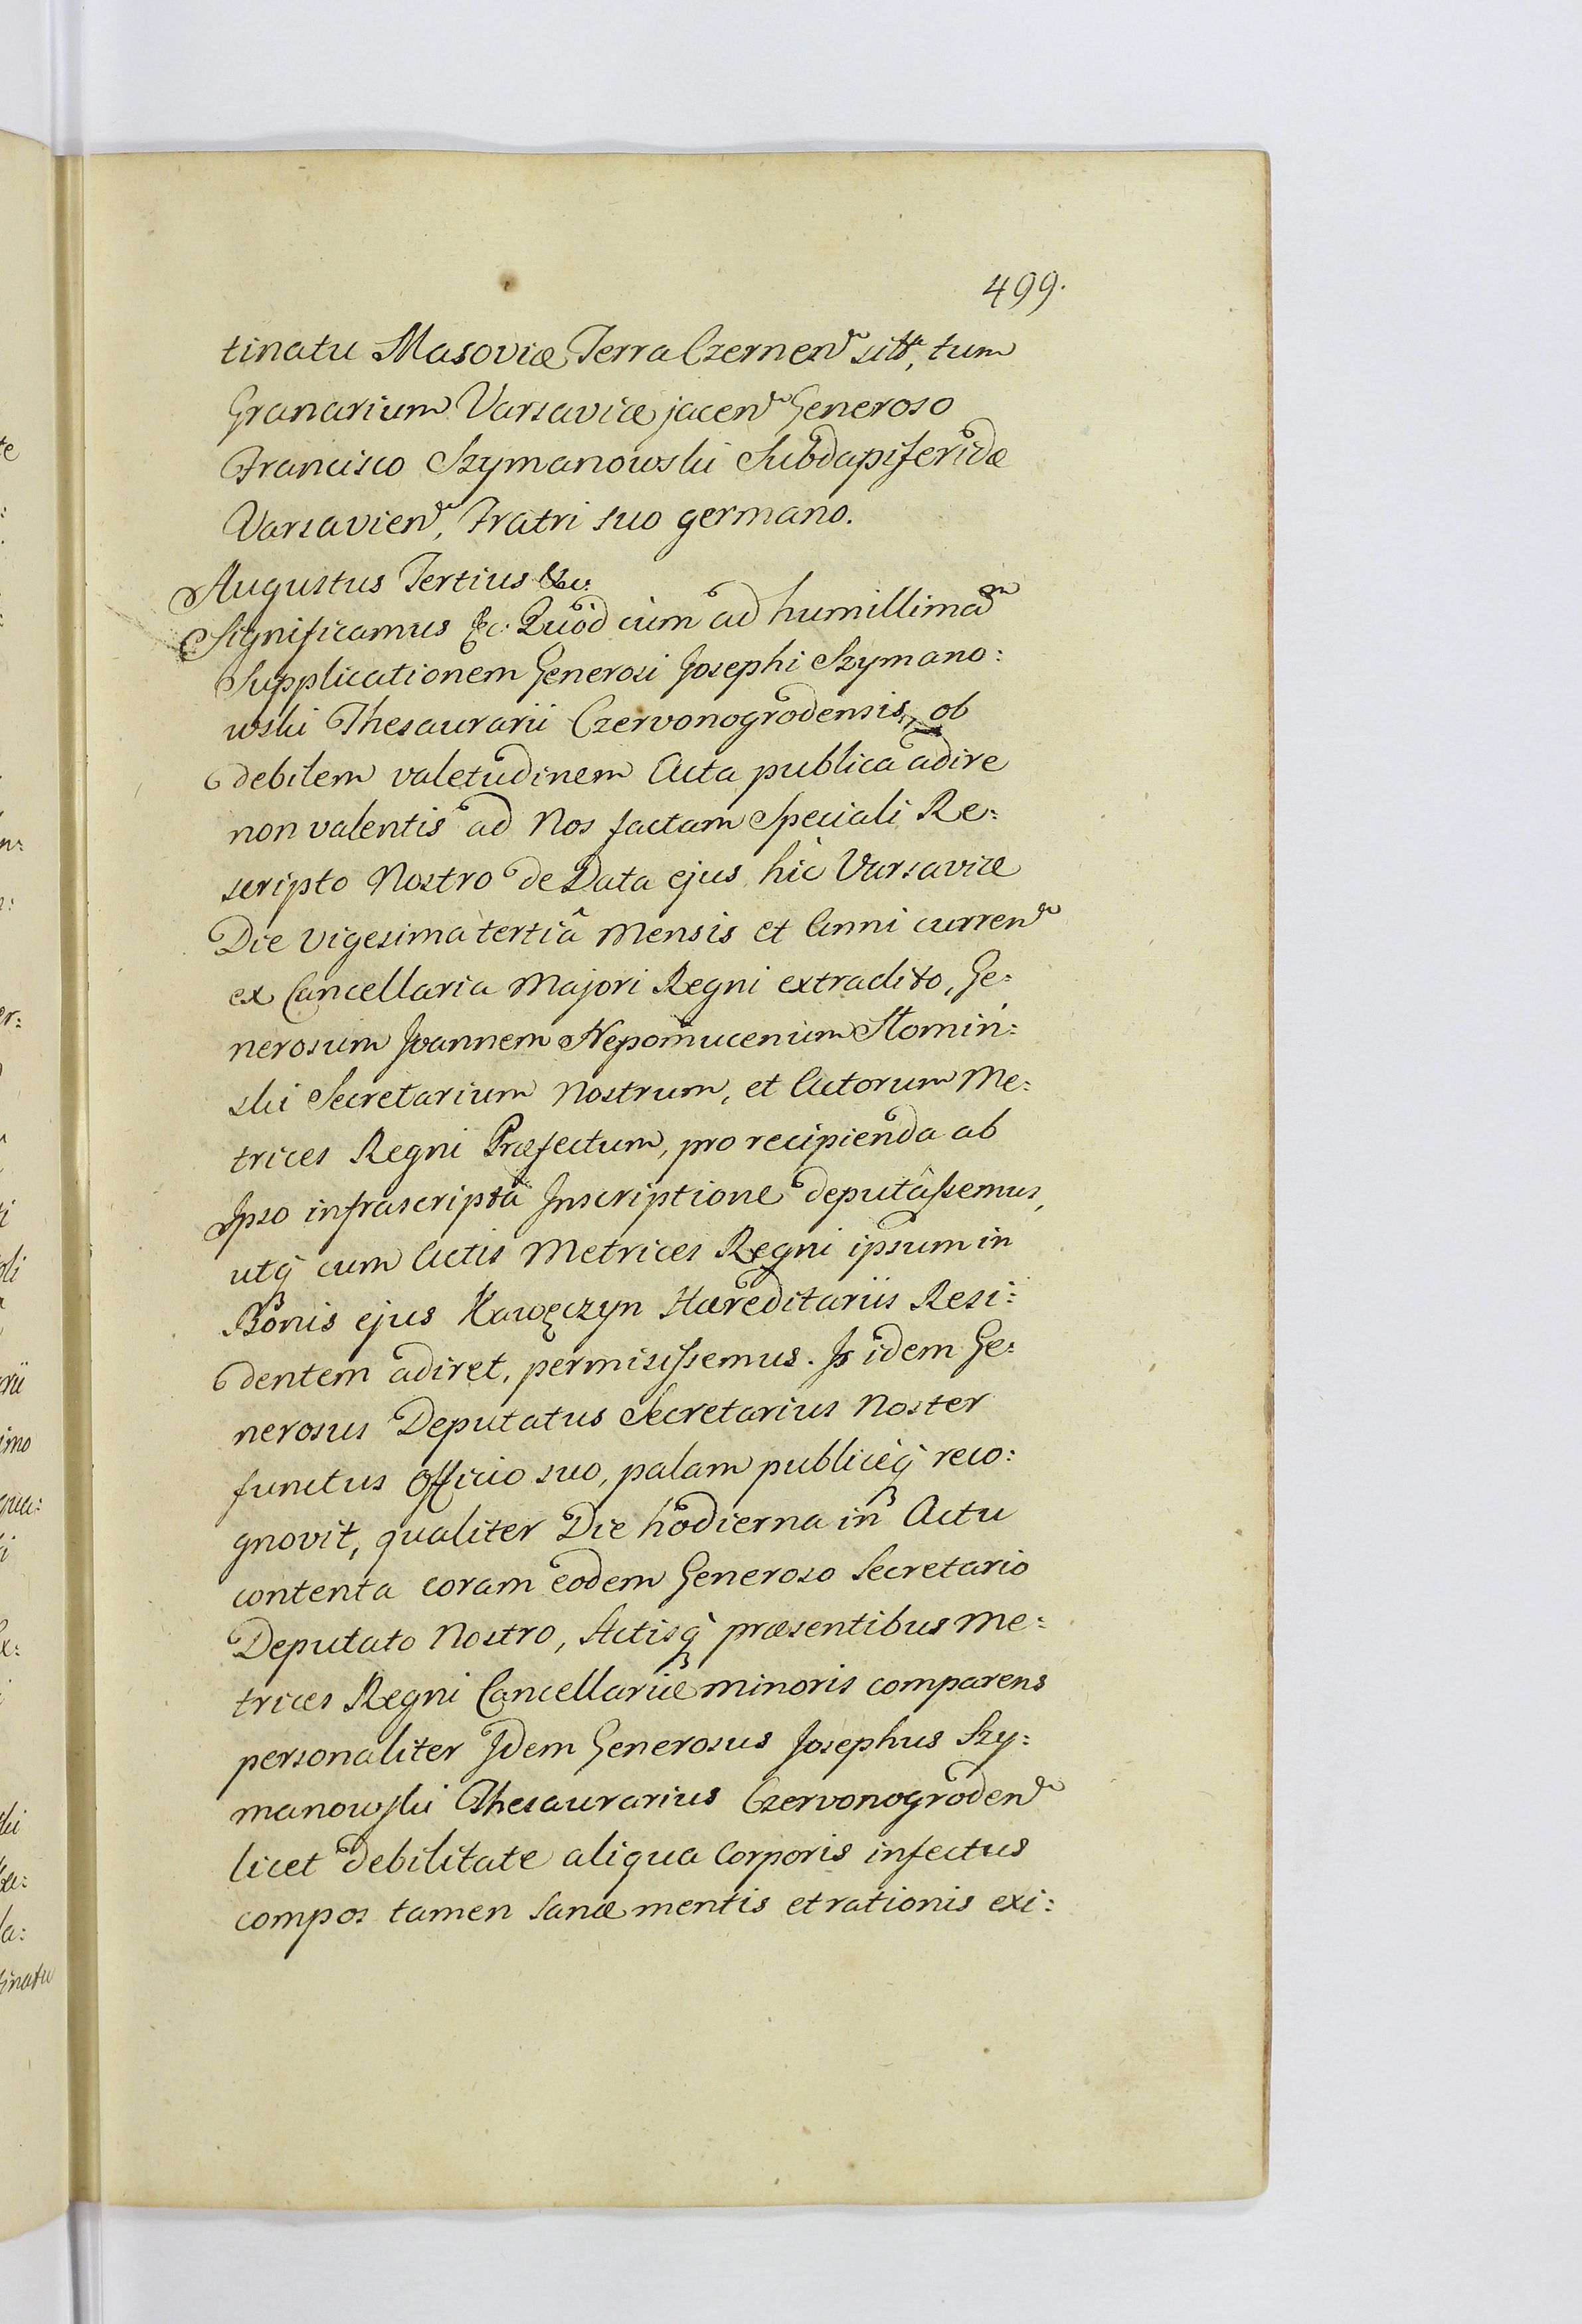 499.
tinatu Masoviæ Terra Czernen sitt, tum
Granarium Varsaviæ jacen Generoso
Francisco Szymanowski Subdapiferidæ
Varsavien, Fratri suo germano.
Augustus Tertius &c:
Significamus &c. Quod cum ad humillimam
Supplicationem Generosi Josephi Szymano:
wski Thesaurarii Czervonogrodensis, ob
debilem valetudinem Acta publica adire
non valentis ad Nos factam Speciali Re:
scripto Nostro de Data ejus hic Varsaviæ
Die vigesima tertiâ Mensis et Anni curren
ex Cancellaria Majori Regni extradito, Ge:
nerosum Joannem Nepomucenum Słomin:
ski Secretarium Nostrum, et Actorum Me:
trices Regni Præfectum, pro recipienda ab
Ipso infrascripta Inscriptione deputâssemus,
utq cum Actis Metrices Regni ipsum in
Bonis ejus Kawęczyn Hæreditariis Resi:
dentem adiret, permisissemus. Is idem Ge:
nerosus Deputatus Secretarius Noster
functus Officio suo, palam publiceq reco:
gnovit, qualiter Die hodierna in Actu
contenta coram eodem Generoso Secretario
Deputato Nostro, Actisq præsentibus Me:
trices Regni Cancellariæ minoris comparens
personaliter Idem Generosus Josephus Szy:
manowski Thesaurarius Czervonogroden
licet debilitate aliqua Corporis infectus
compos tamen sanæ mentis et rationis exi: